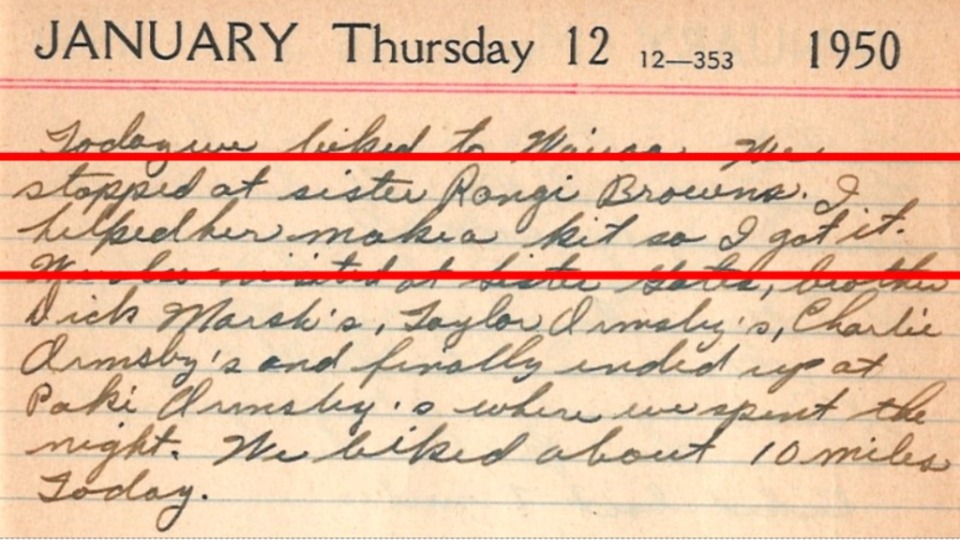 JANUARY Thursday 12 12—353 1950
Today we biked to We
stopped at sister Rangi Browns. I
helped her make a kit so I got it.
We also visited at sister brother
Dick Marsh's, Taylor Ormsby's, Charlie
Ormsby's and finally ended up at
Paki Ormsby's where we spent the
night. We biked about 10 miles
Today.